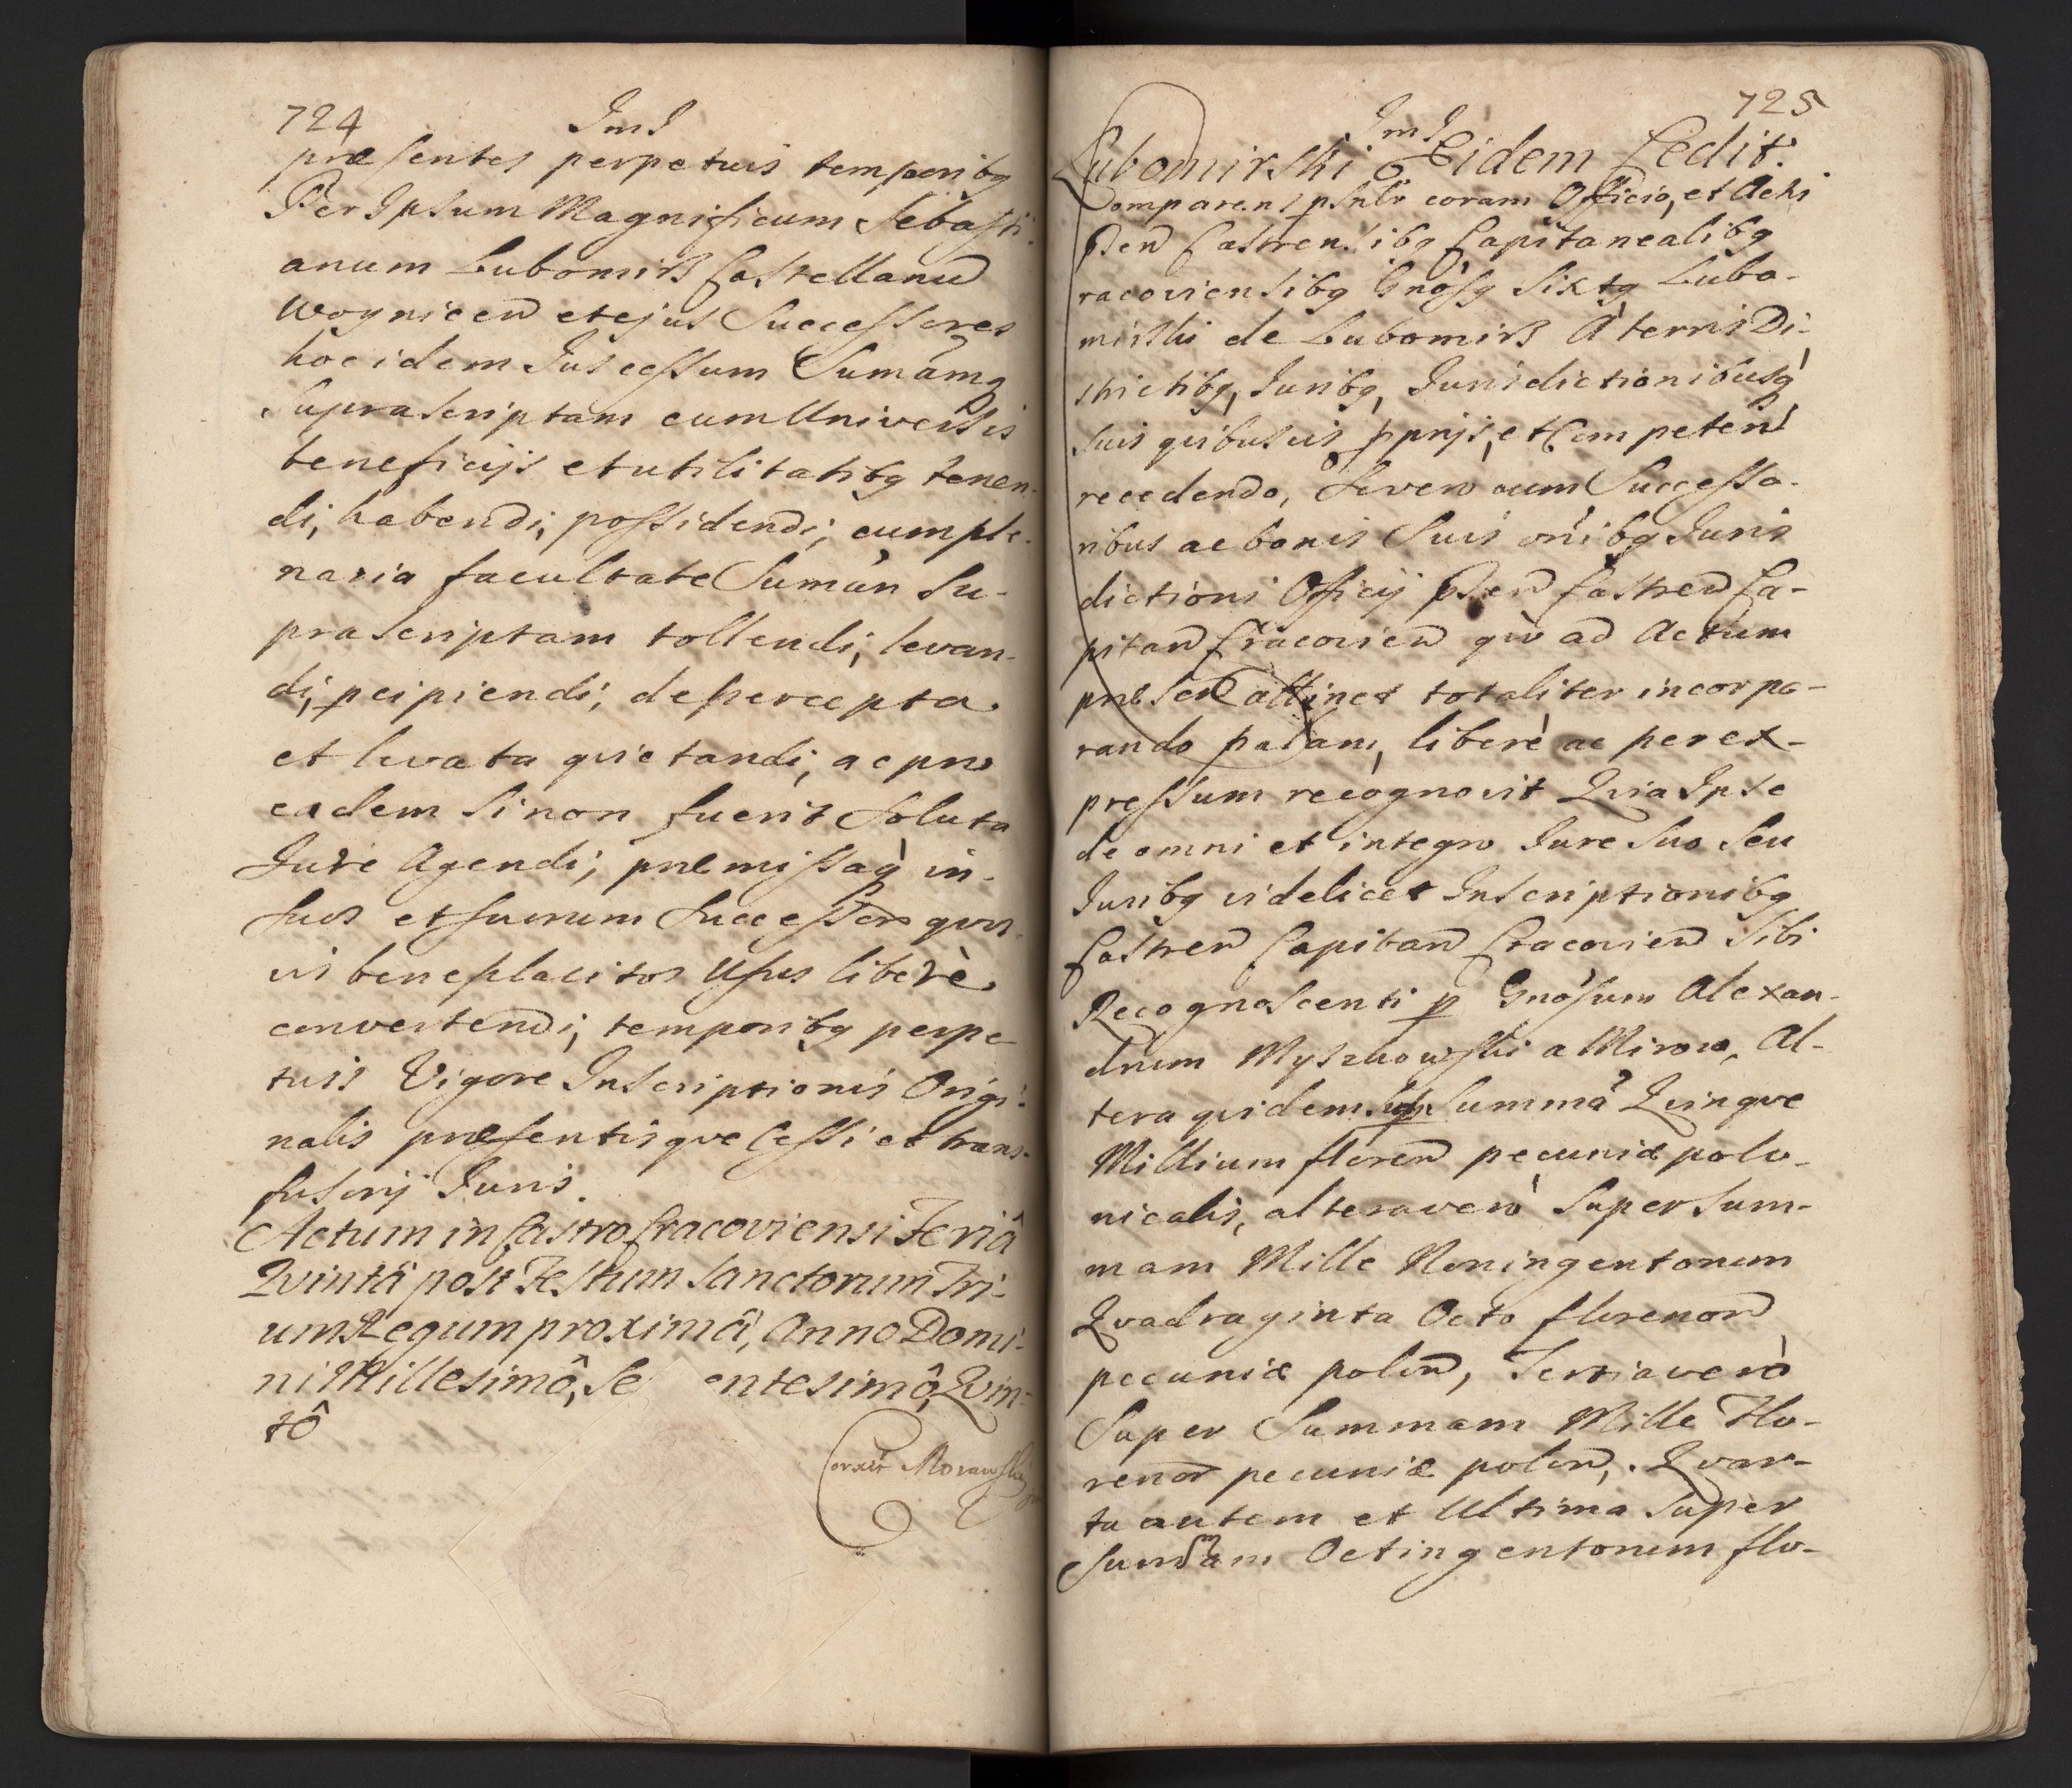 724
ImI
præsentes perpetuis temporibq
Per Ipsum Magnificum Sebasti-
anum Lubomirß Castellanu
Woynicen et ejus Successores
hoc idem Jus cessum Sumãmq
Suprascriptam cum Universis
beneficijs et utilitatibq tenen-
di, habendi, possidendi, cum ple-
naria facultate Sumãm Su-
prascriptam tollendi, levan-
di, pcipiendi, de percepta
et levata quietandi, ac pro
eadem si non fuerit soluta
Jure Agendi, præmissaq in
suos et suorum Successor quos-
vis beneplacitos Usus liberè
convertendi, temporibq perpe-
tuis Vigore Inscriptionis Origi-
nalis præsentisque Cessi et trans-
fusorij Juris.
Actum in Castro Cracoviensi Feriâ
Quintâ post Festum Sanctorum Tri-
um Regum proximâ, Anno Domi-
ni Millesimô, Se entesimô, Quin-
tô
Corxit Morawski
725
ImI
Lubomirski Eidem Cedit.
Comparens psnlr coram Officio, et Actis
pSen Castrensibq Capitanealibq
racoviensibq Gnosq Sixtq Lubo-
mirski de Lubomirß A terris Di-
strictibq, Juribq, Jurisdictionibusq
suis quibusvis pprijs, et Competen
recedendo, Se vero cum Successo-
ribus ac bonis Suis oñibq Juris
dictioni Officij pSen Castren Ca-
pitan Cracovien qvo ad Actum
præsen attinet totaliter incorpo-
rando palam, liberè ac per ex-
pressum recognovit Quia Ipse
de omni et integro Jure Suo Seu
Juribq videlicet Inscriptionibq
Castren Capitan Cracovien Sibi
Recognoscenti p Gnosum Alexan-
drum Myszkowski a Mirow, Al-
tera quidem sup Summã Quinque
Millium floren pecuniæ polo-
nicalis, altera verò Super Sum-
mam Mille Noningentorum
Quadraginta Octo florenor
pecuniæ polon, Tertia verò
Super Summam Mille Flo-
renor pecuniæ polon, Quar-
ta autem et Ultima Super
Summam Octingentorum flo-